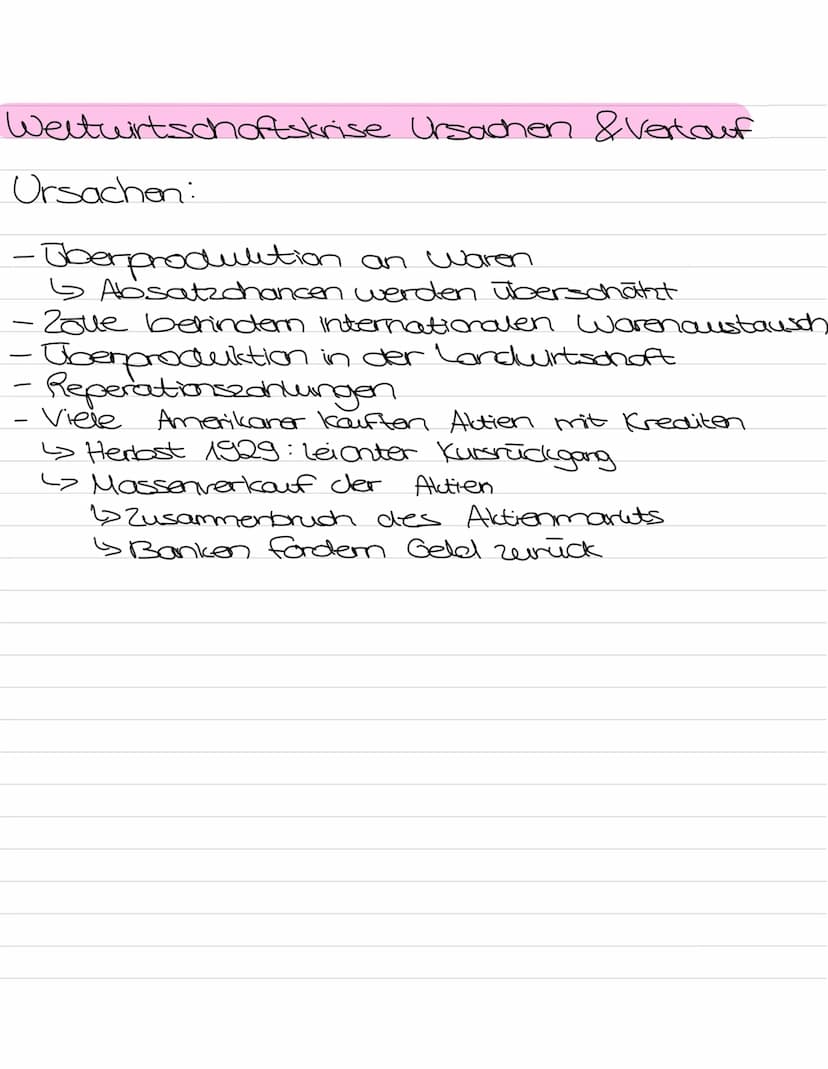 Weltwirtschaftskrise Ursachen & Verlauf
Ursachen:
- Überproduktion an Waren
↳ Absatzchancen werden überschätzt
- Zölle behindern internationalen Warenaustausch
- Überproduktion in der Landwirtschaft
- Reperationszahlungen
- Viele Amerikaner kauften Aktien mit Krediten
↳ Herbst 1929: leichter Kursrückgang
↳ Massenverkauf der Aktien
↳ Zusammenbruch des Aktienmarkts
↳ Banken fordern Geld zurück